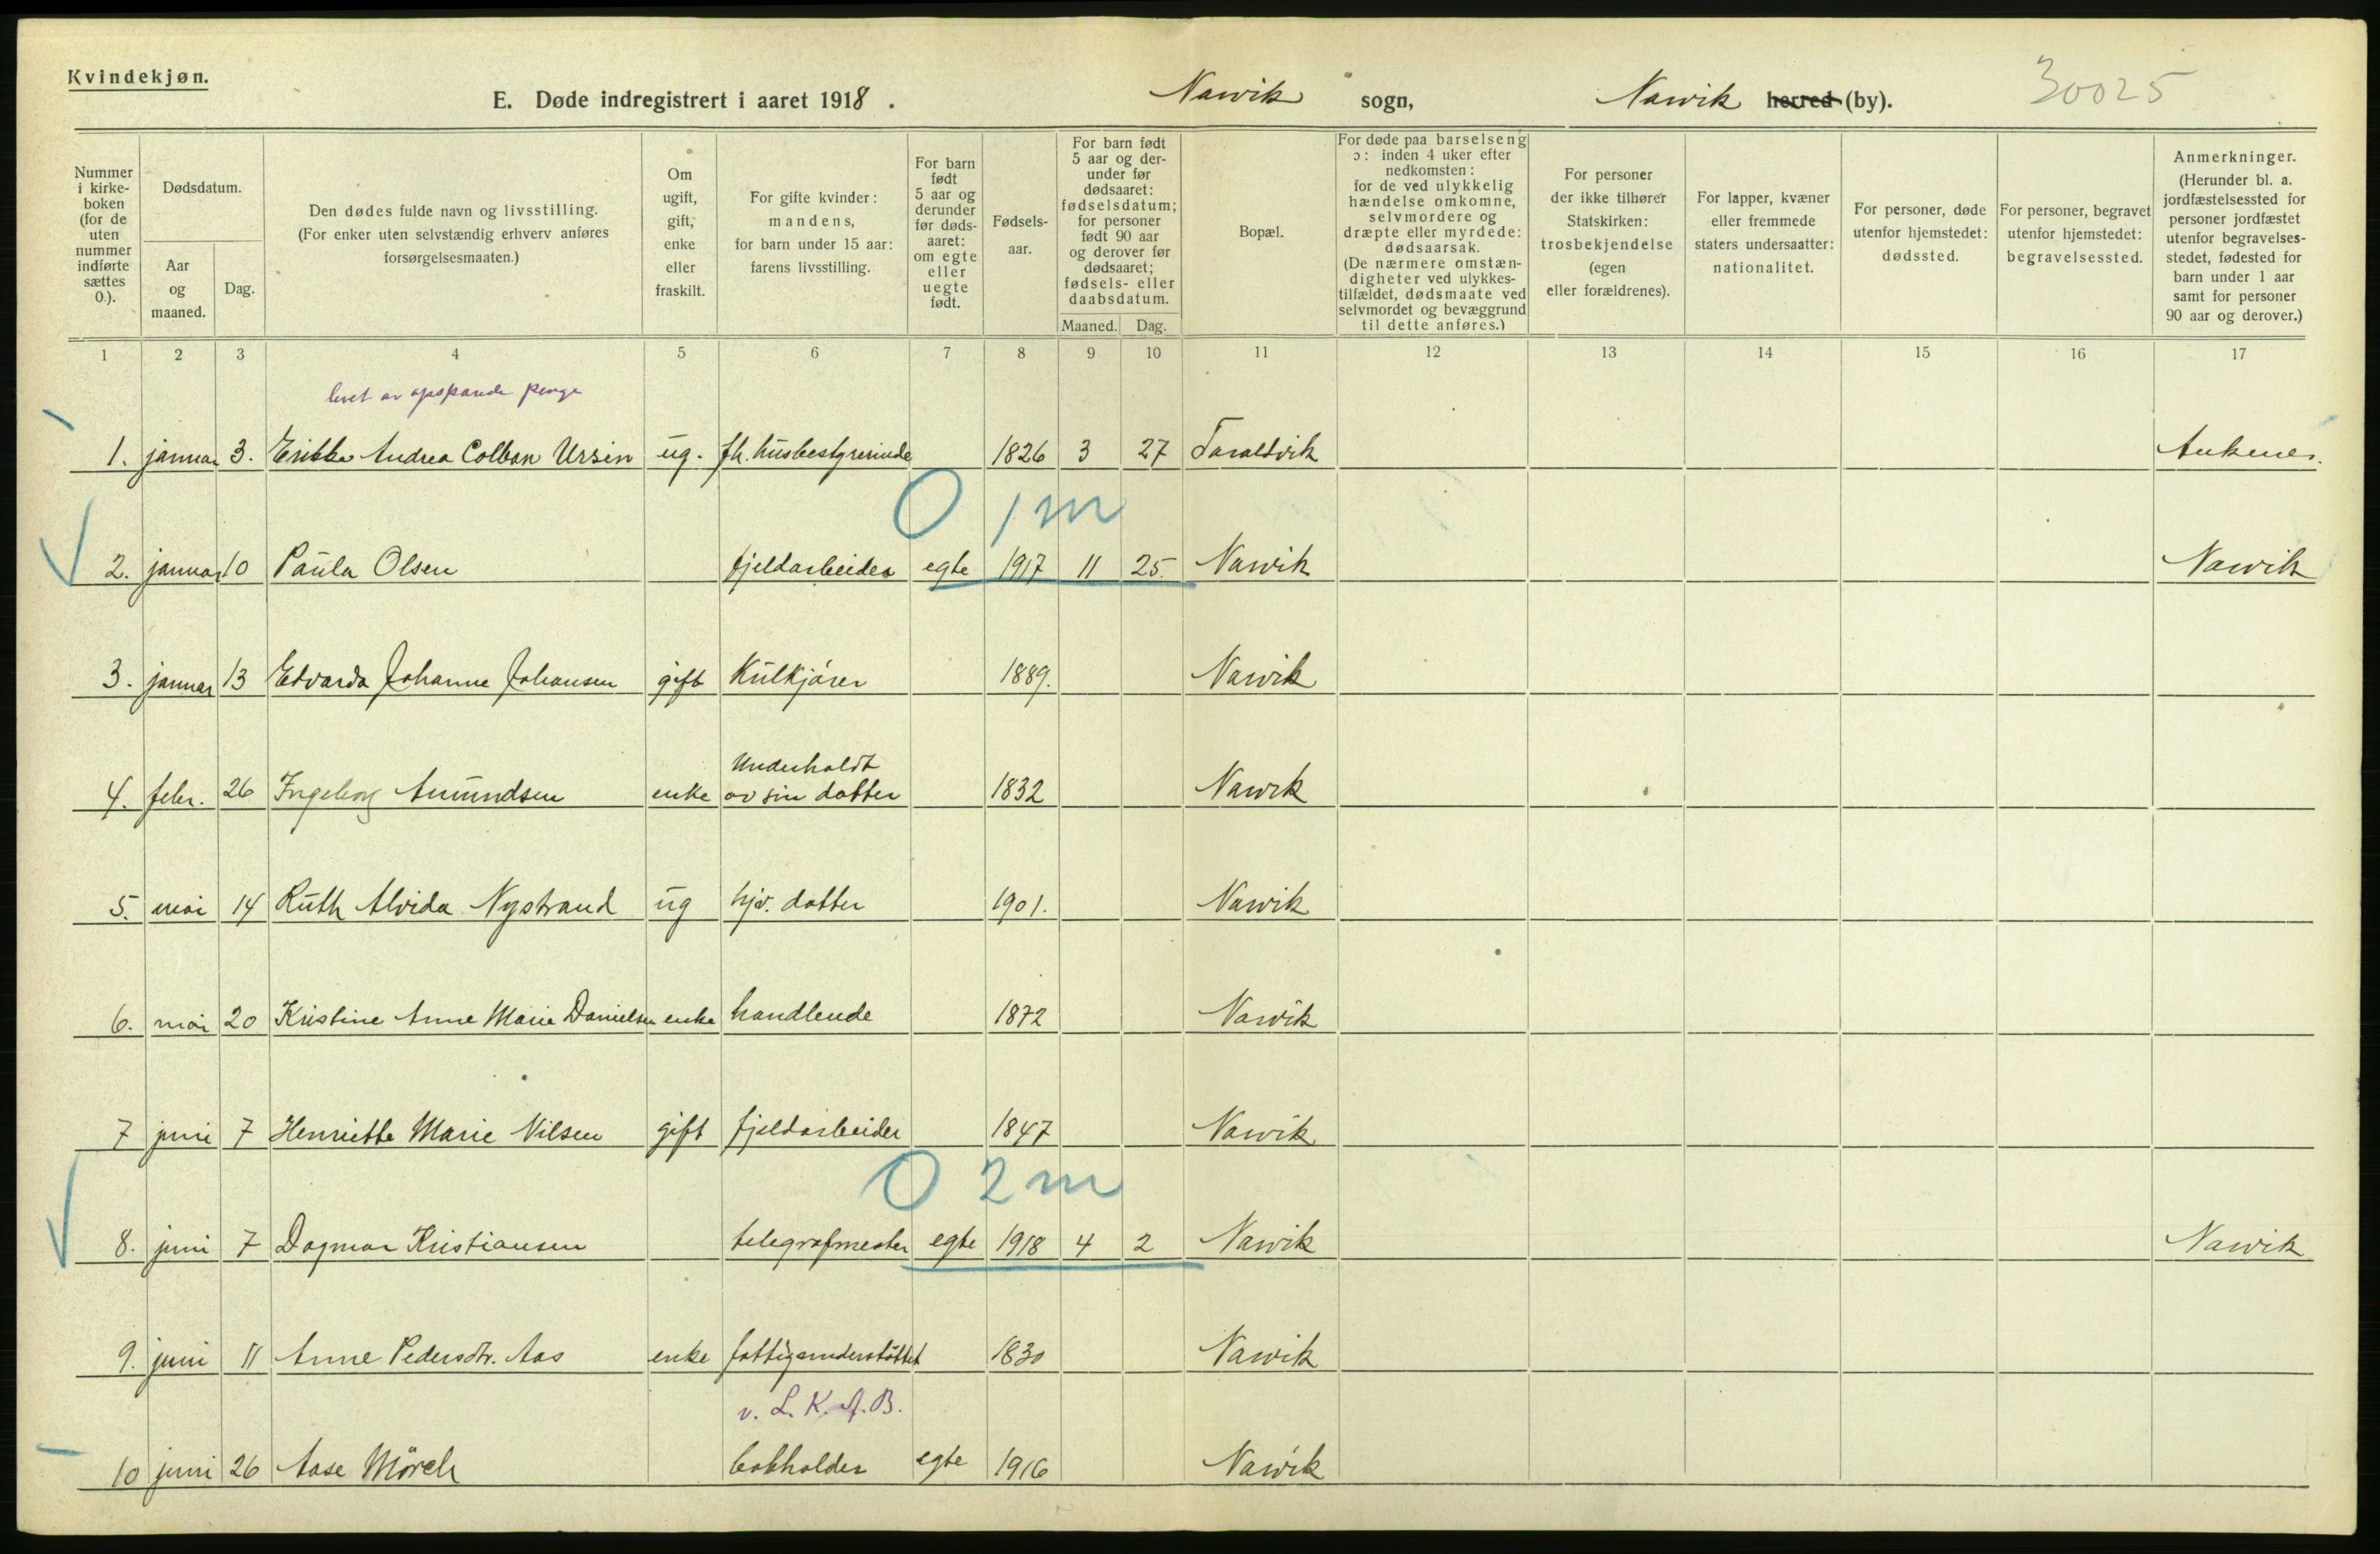 Kvindekjøn.
E. Døde indregistrert i aaret 1918. Narvik sogn, Narvik herred (by). 30025
Nummer i kirkeboken (for de uten nummer indførte sættes 0.).
Dødsdatum.
Aar og maaned.
Dag.
Den dødes fulde navn og livsstilling. (For enker uten selvstændig erhverv anføres forsørgelsesmaaten.)
Om ugift, gift, enke eller fraskilt.
For gifte kvinder: mandens, for barn under 15 aar: farens livsstilling.
For barn født 5 aar og derunder før dødsaaret: om egte eller uegte født.
Fødselsaar.
For barn født 5 aar og derunder før dødsaaret: fødselsdatum; for personer født 90 aar og derover før dødsaaret; fødsels- eller daabsdatum.
Maaned. Dag.
Bopæl.
For døde paa barselseng ɔ: inden 4 uker efter nedkomsten: for de ved ulykkelig hændelse omkomne, selvmordere og dræpte eller myrdede: dødsaarsak. (De nærmere omstændigheter ved ulykkestilfældet, dødsmaate ved selvmordet og bevæggrund til dette anføres.)
For personer der ikke tilhører Statskirken: trosbekjendelse (egen eller forældrenes).
For lapper, kvæner eller fremmede staters undersaatter: nationalitet.
For personer, døde utenfor hjemstedet: dødssted.
For personer, begravet utenfor hjemstedet: begravelsessted.
Anmerkninger. (Herunder bl. a. jordfæstelsessted for personer jordfæstet utenfor begravelsesstedet, fødested for barn under 1 aar samt for personer 90 aar og derover.)
1 2 3 4 5 6 7 8 9 10 11 12 13 14 15 16 17
levet av opsparede penge
1. januar 3. Erikke Andrea Colban Ursin ug. fh. husbestyrerinde 1826 3 27 Taraldvik Ankenes.
0 1 m
2. januar 10 Paula Olsen fjeldarbeider egte 1917 11 25. Narvik Narvik
3. januar 13 Edvarda Johanne Johansen gift Kulkjører 1889. Narvik
Underholdt
4. febr. 26 Ingeborg Amundsen enke av sin datter 1832 Narvik
5. mai 14 Ruth Alvida Nystrand ug hjv. datter 1901. Narvik
6. mai 20 Kristine Anne Marie Danielsen enke handlende 1872 Narvik
7 juni 7 Henriette Marie Nilsen gift fjeldarbeider 1847 Narvik
0 2 m
8. juni 7 Dagmar Kristiansen telegrafmester egte 1918 4 2 Narvik Narvik
9. juni 11 Anne Pedersdtr. Aas enke fattigunderstøttet 1830 Narvik
v. L. K. A. B.
10 juni 26 Aase Mörch bokholder egte 1916 Narvik